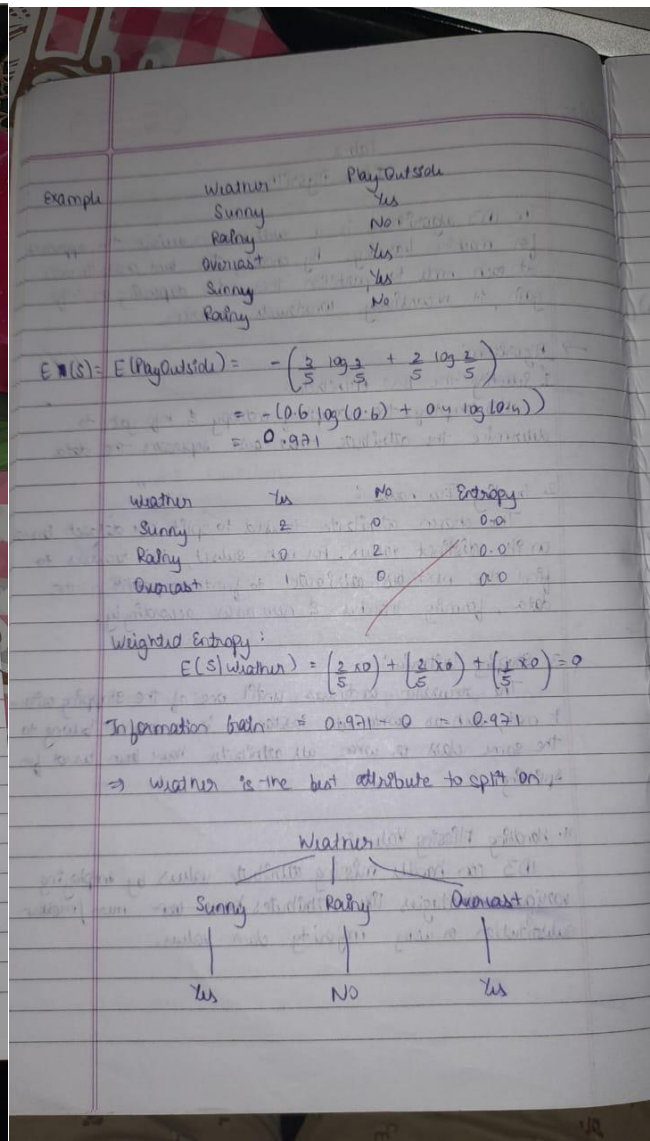 Example Weather Play Outside
Sunny Yes
Rainy No
Overcast Yes
Sunny Yes
Rainy No
E(S) = E(PlayOutside) = -(3/5 log 3/5 + 2/5 log 2/5)
= -(0.6 log(0.6) + 0.4 log(0.4))
= 0.971
Weather Yes No Entropy
Sunny 2 0 0.0
Rainy 0 2 0.0
Overcast 1 0 0.0
Weighted Entropy :
E(S|Weather) = (2/5 x0) + (2/5 x0) + (1/5 x0) = 0
Information Gain = 0.971 - 0 = 0.971
⇒ Weather is the best attribute to split on.
Weather
Sunny Rainy Overcast
Yes NO Yes